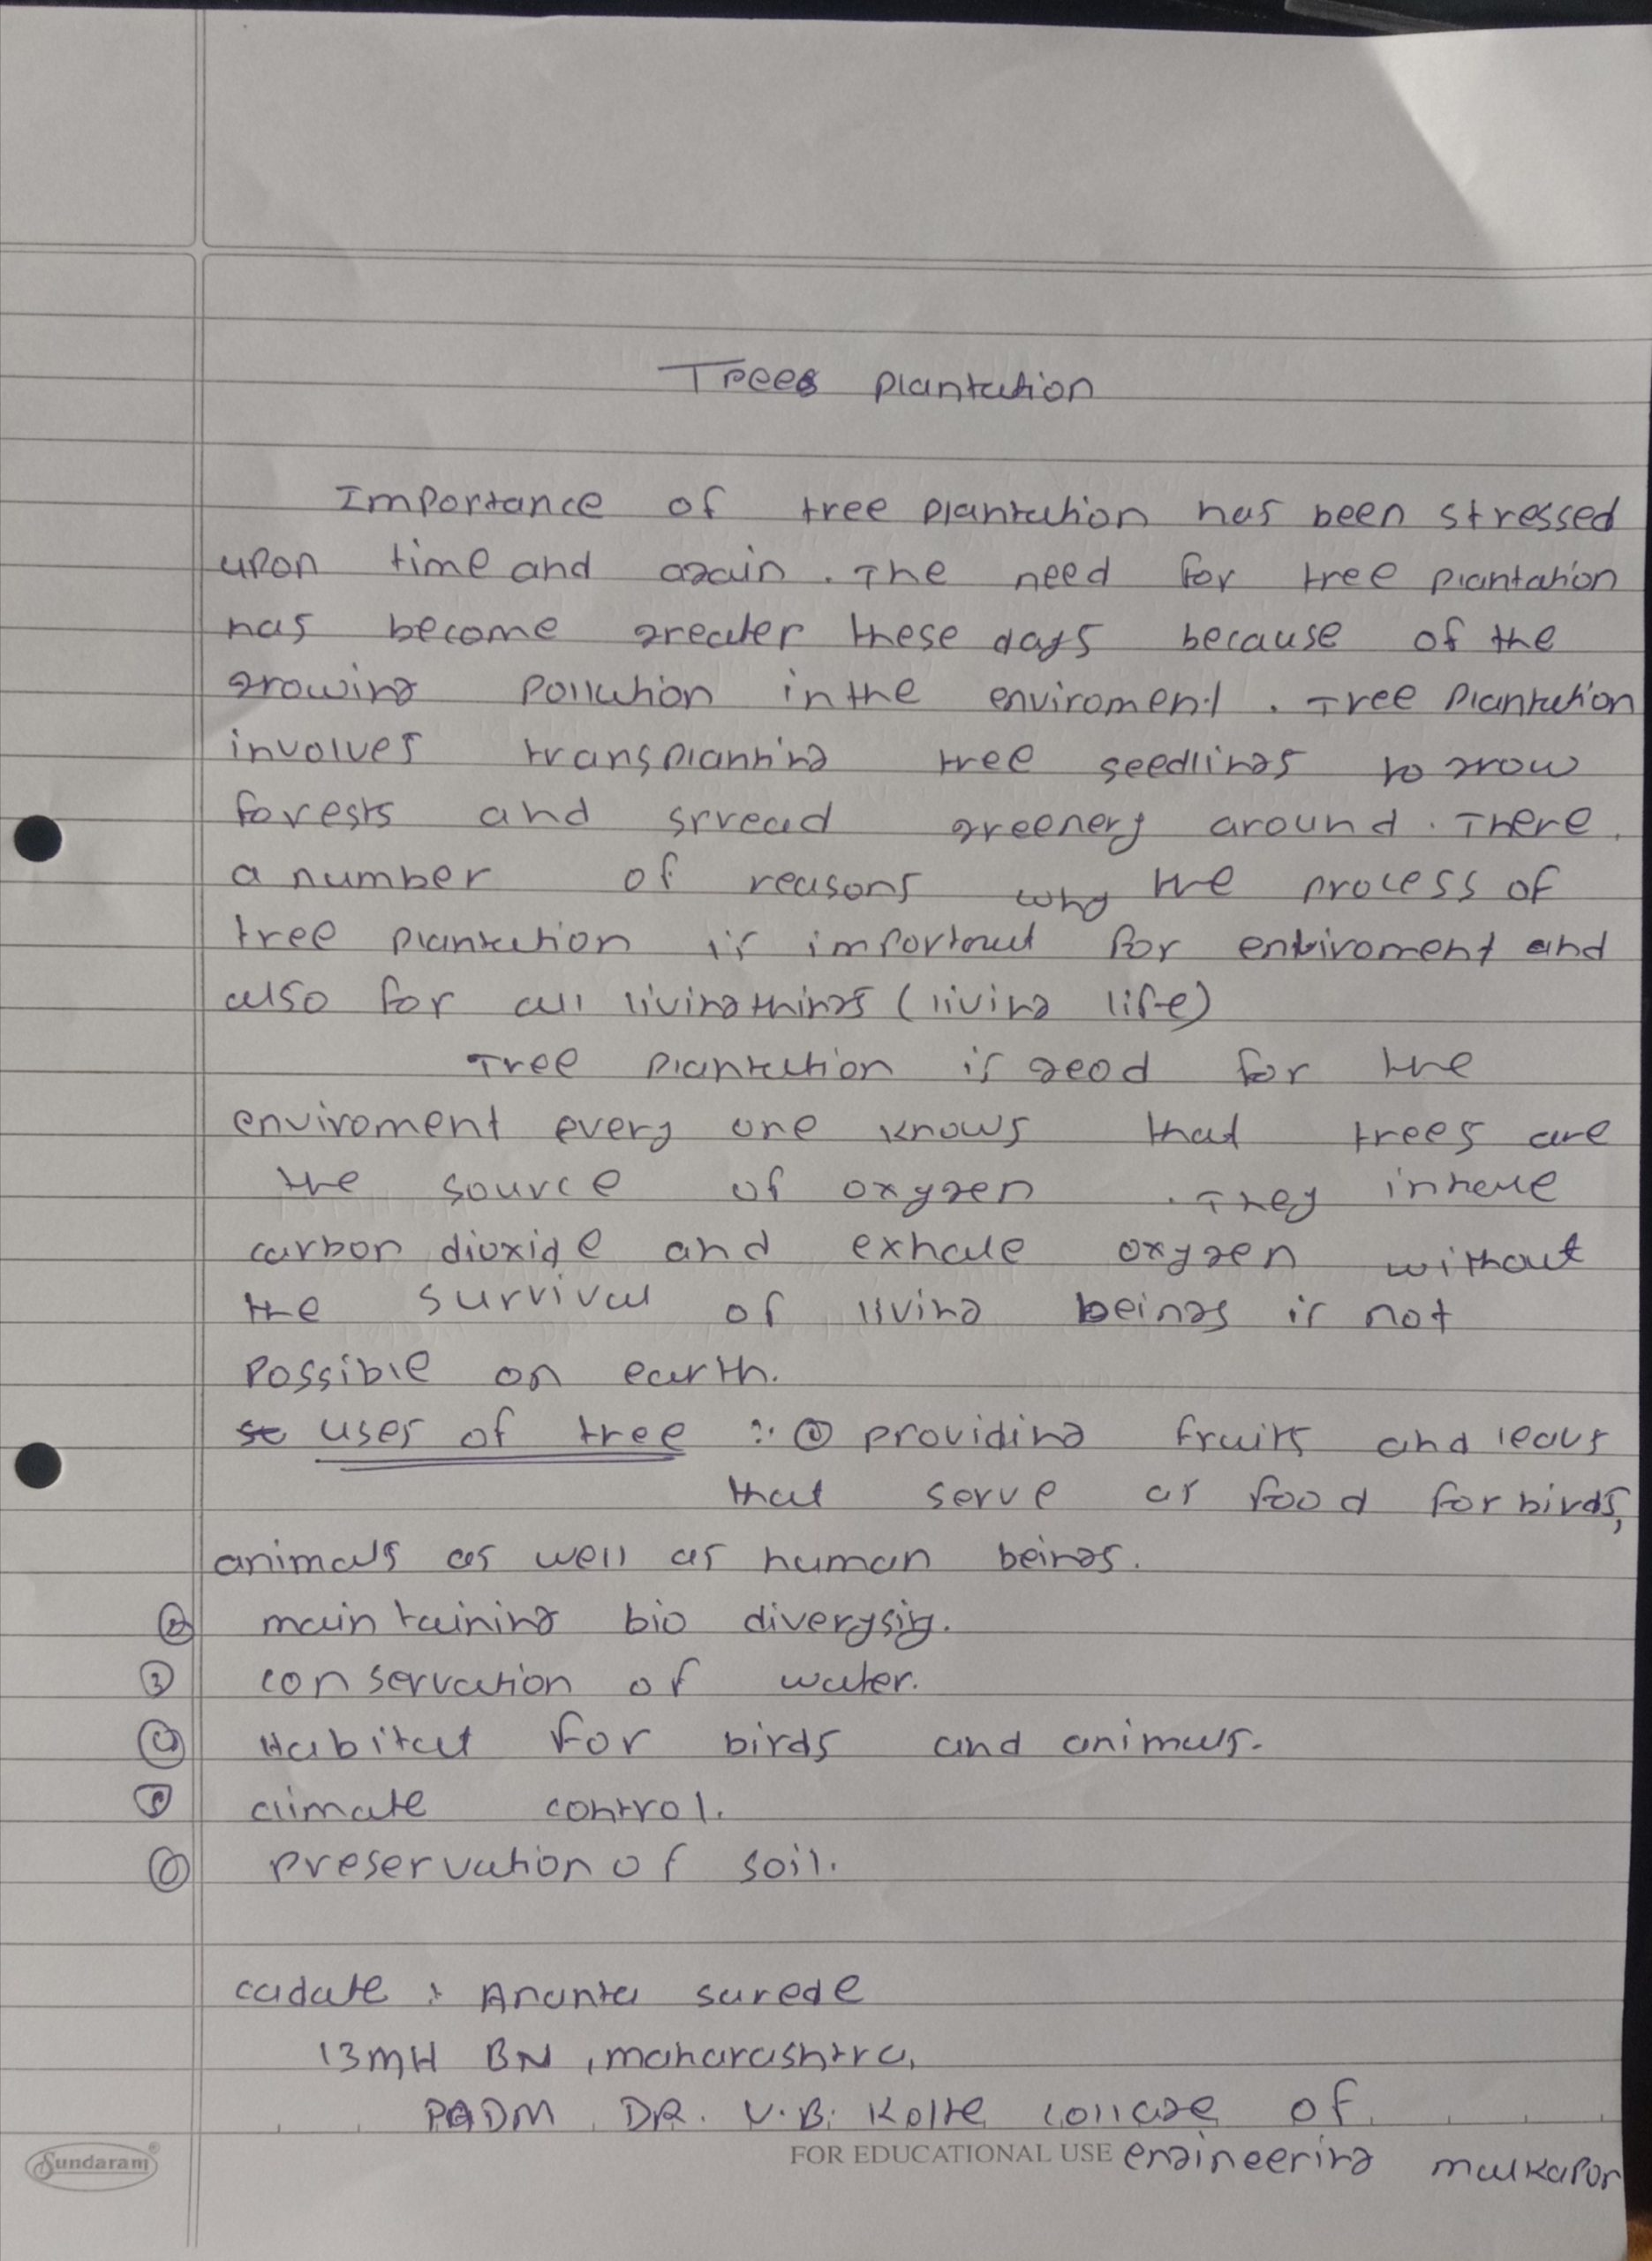 Trees plantation
Importance of tree plantation has been stressed
upon time and again. The need for tree plantation
has become greater these days because of the
growing pollution in the enviroment. Tree plantation
involves transplanting tree seedlings to grow
forests and srread greenery around. There
a number of reasons why the process of
tree plantation is important for enviroment and
also for all living things (living life)
Tree plantation is geod for the
enviroment every one knows that trees are
the source of oxygen. They inhale
carbon dioxide and exhale oxygen without
the survival of living beings is not
possible on earth.
uses of tree :- ① providing fruits and leavs
that serve as food for birds,
animals as well as human beings.
② maintaining bio diverysig.
③ conservation of water.
④ Habitat for birds and animals.
⑤ climate control.
⑥ preservation of soil.
cadate : Ananta surede
13 MH BN, maharashtra,
PADM. DR. V.B. Kolte collage of
Sundaram®
FOR EDUCATIONAL USE
engineering malkapor